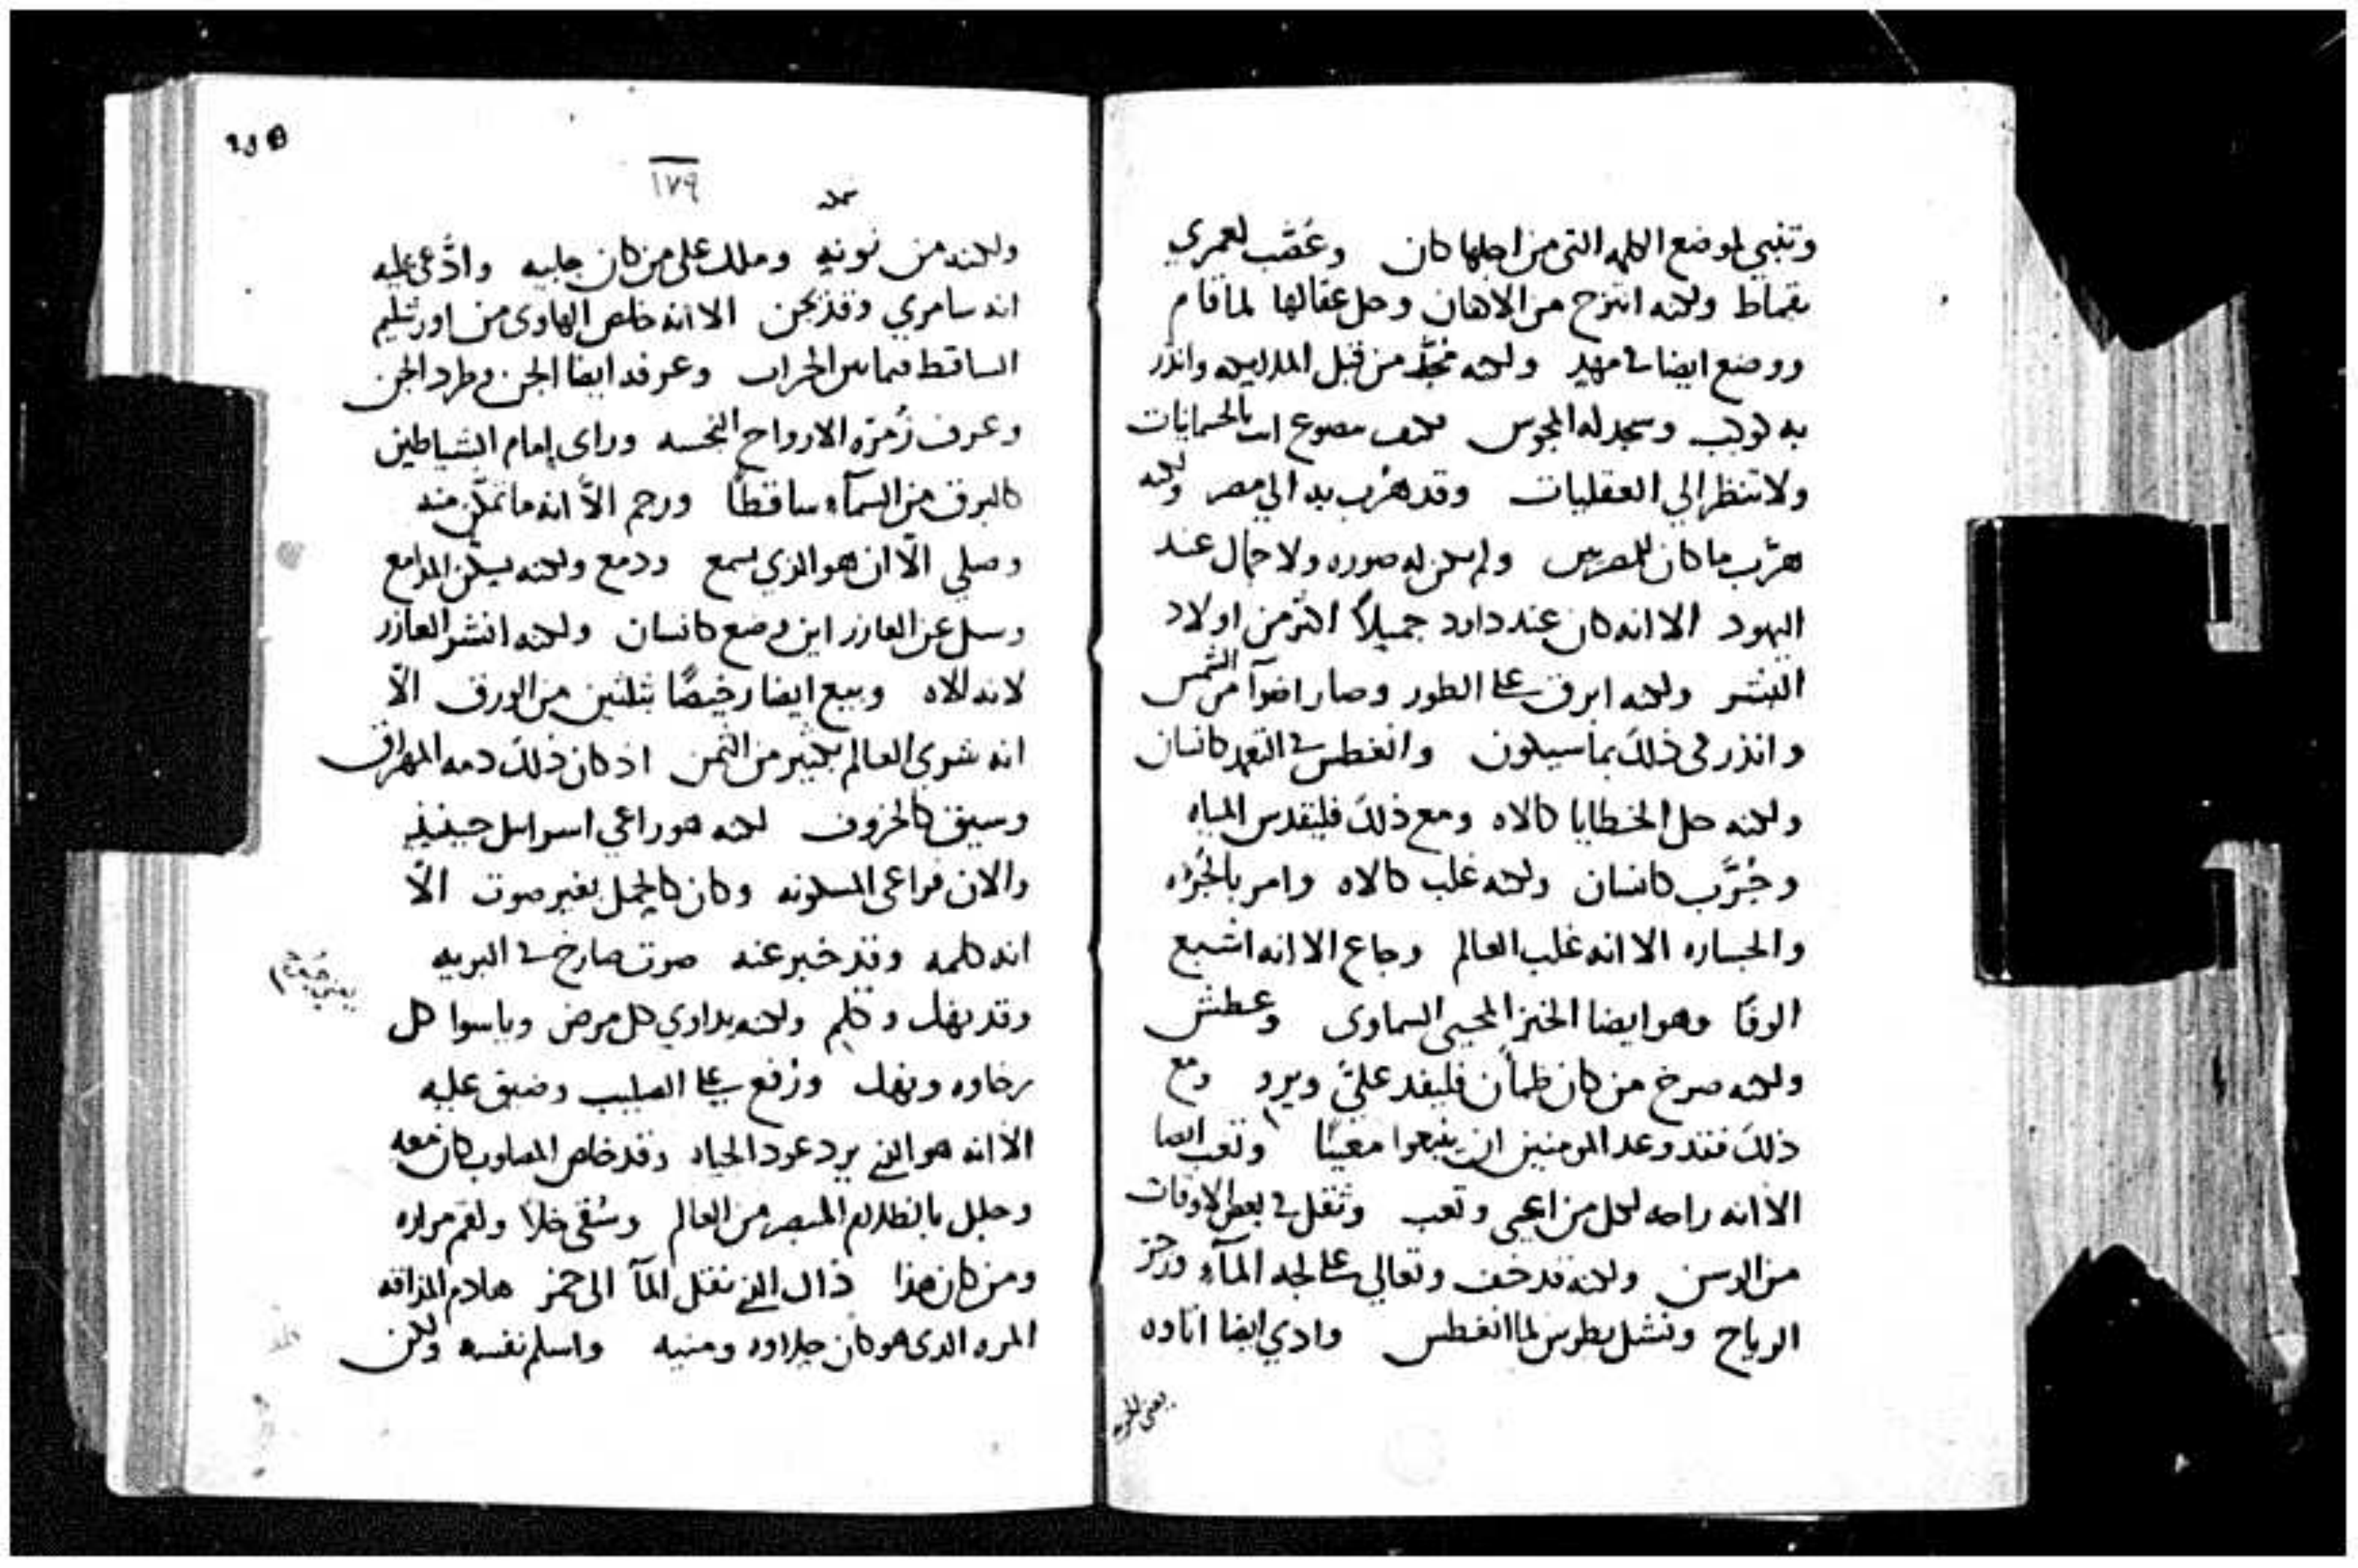 وتغبي لموضع الكلمه التي من اجلها كان وعُصّب لعمري
بقماط ولكنه انتزح من الاهان وحل عقالها لما قام
ووضع ايضا في مهد ولكنه مُجّد من قبل الملايكه وانذر
به كوكب وسجد له المجوس فكيف مصوع انت بالجسمانيات
ولا تنظر الي العقليات وقد هُرّب به الي مصر ولكنه
هرّب ما كان للمصريين ولم يكن له صوره ولا جمال عند
اليهود الا انه كان عند داود جميلاً اكثر من اولاد
البشر ولكنه ابرق على الطور وصار اضوآ من الشمس
وانذر في ذلك بما سيكون وانغطس في التعمد كانسان
ولكنه حل الخطايا كالاه ومع ذلك فليقدس المياه
وجُرّب كانسان ولكنه غلب كالاه وامر بالجُراه
والجساره الا انه غلب العالم وجاع الا انه اشبع
الوفًا وهو ايضا الخبز المحيي السماوي وعطش
ولكنه صرخ من كان ظمأن فليفد عليّ ويرد ومع
ذلك فقد وعد المومنين ان ينبعوا معينًا وتعب ايضا
الا انه راحه لكل من اعيى وتعب وثقل في بعض الاوقات
من الوسن ولكنه قد خف وتعالي على لجه المآء وزجر
الرياح ونشل بطرس لما انغطس وادي ايضا اتاوه
يعني للجزيه
١٧٩
ولكنه من نونه وملك على من كان جابيه وادُّعي عليه
انه سامري وقد تجن الا انه خلص الهاوي من اورشليم
الساقط فيما بين الحراب وعرفه ايضا الجن وطرد الجن
وعرف زُمرَه الارواح النجسه وراى امام الشياطين
كالبرق من السمآء ساقطًا ورجم الاّ انه ما تمكّن منه
وصلي الّا ان هو الذي يسمع ودمع ولكنه يسكّن المدامع
وسل عن العازر اين وضع كانسان ولكنه انشر العازر
لانه الاه وبيع ايضا رخيصًا بثلثين من الورق الاّ
انه شوي العالم بكثير من الثمن اذ كان ذلك دمه المهراق
وسيق كالخروف لكنه هو راعي اسراييل حينيذٍ
والان فراعي المسكونه وكان كالحمل بغير صوت الاّ
انه كلمه وقد خبر عنه صوت صارخ في البريه
وقد نهك وكلم ولكنه يداوي كل مرض وياسوا كل
رخاوه ونهك ورُفع على الصليب وضيق عليه
الا انه هو الذي يرد عود الحياه وقد خلص المصلوب كان معه
وجلل بالظلام المبصر من العالم وسُقي خلاً ولقم مراره
ومن كان هذا ذاك الذي نقل المآ الى خمر هادم المذاقه
المره الذي هو كان حلاوه ومنيه واسلم نفسه ولكن